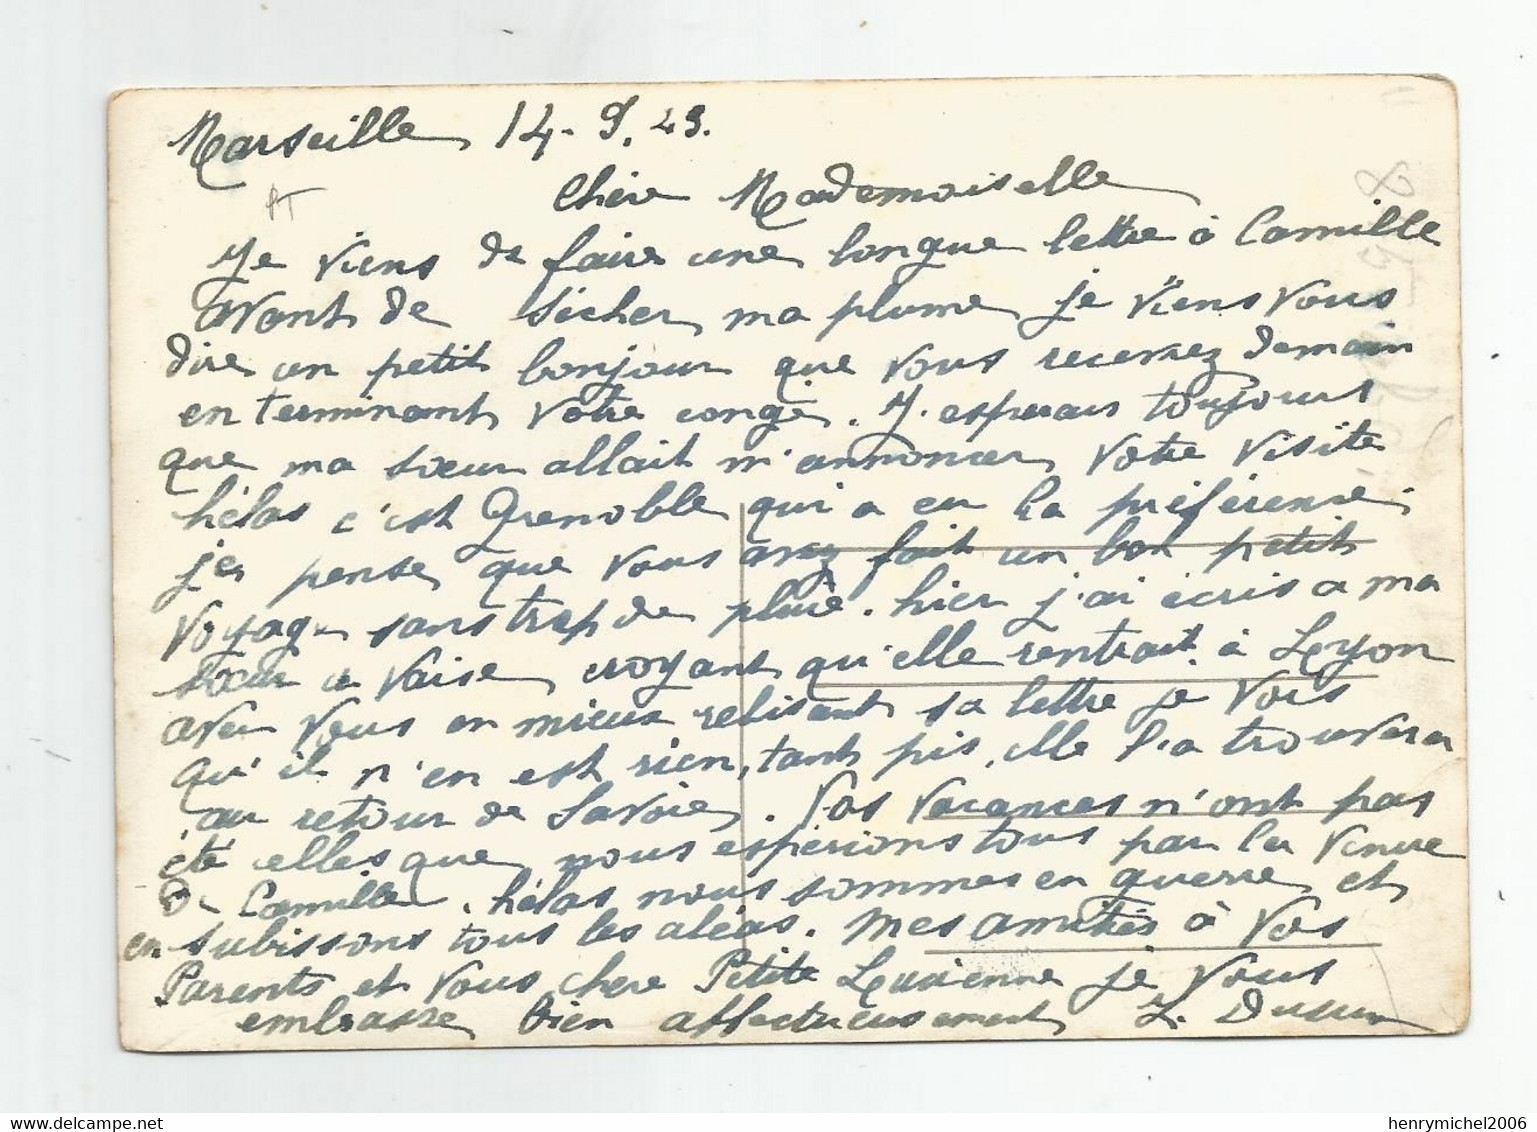 Marseille 14-9.43.
Chère Mademoiselle
Je viens de faire une longue lettre à Camille
avant de sécher ma plume je viens vous
dire un petit bonjour que vous recevrez demain
en terminant votre congé. J'esperais toujours
que ma sœur allait m'annoncer votre visite
hélas c'est Grenoble qui a eu la préférence.
je pense que vous avez fait un bon petit
voyage sans trop de pluie. hier j'ai écris a ma
sœur a Vaise croyant qu'elle rentrait à Lyon
avec vous en mieux relisant sa lettre je vois
qu'il n'en est rien, tant pis, elle la trouvera
au retour de Savoie. Vos vacances n'ont pas
été celles que nous espérions tous par la venue
de Camille. hélas nous sommes en guerre et
en subissons tous les aléas. Mes amitiés à vos
Parents et vous chere Petite Lucienne je vous
embrasse bien affectueusement L.
henrymichel2006